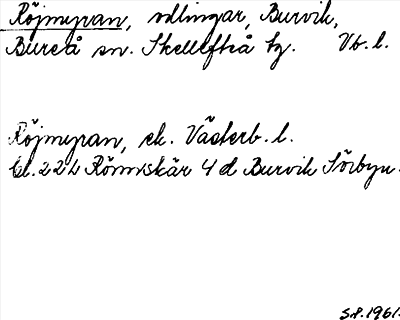 Röjmyran, odlingar, Burvik,
Bureå sn. Skellefteå tg. Vb. l.
Röjmyran, ek. Västerb. l.
bl. 22 L Rönnskär 4 d Burvik Sörbyn.
S.P. 1961.